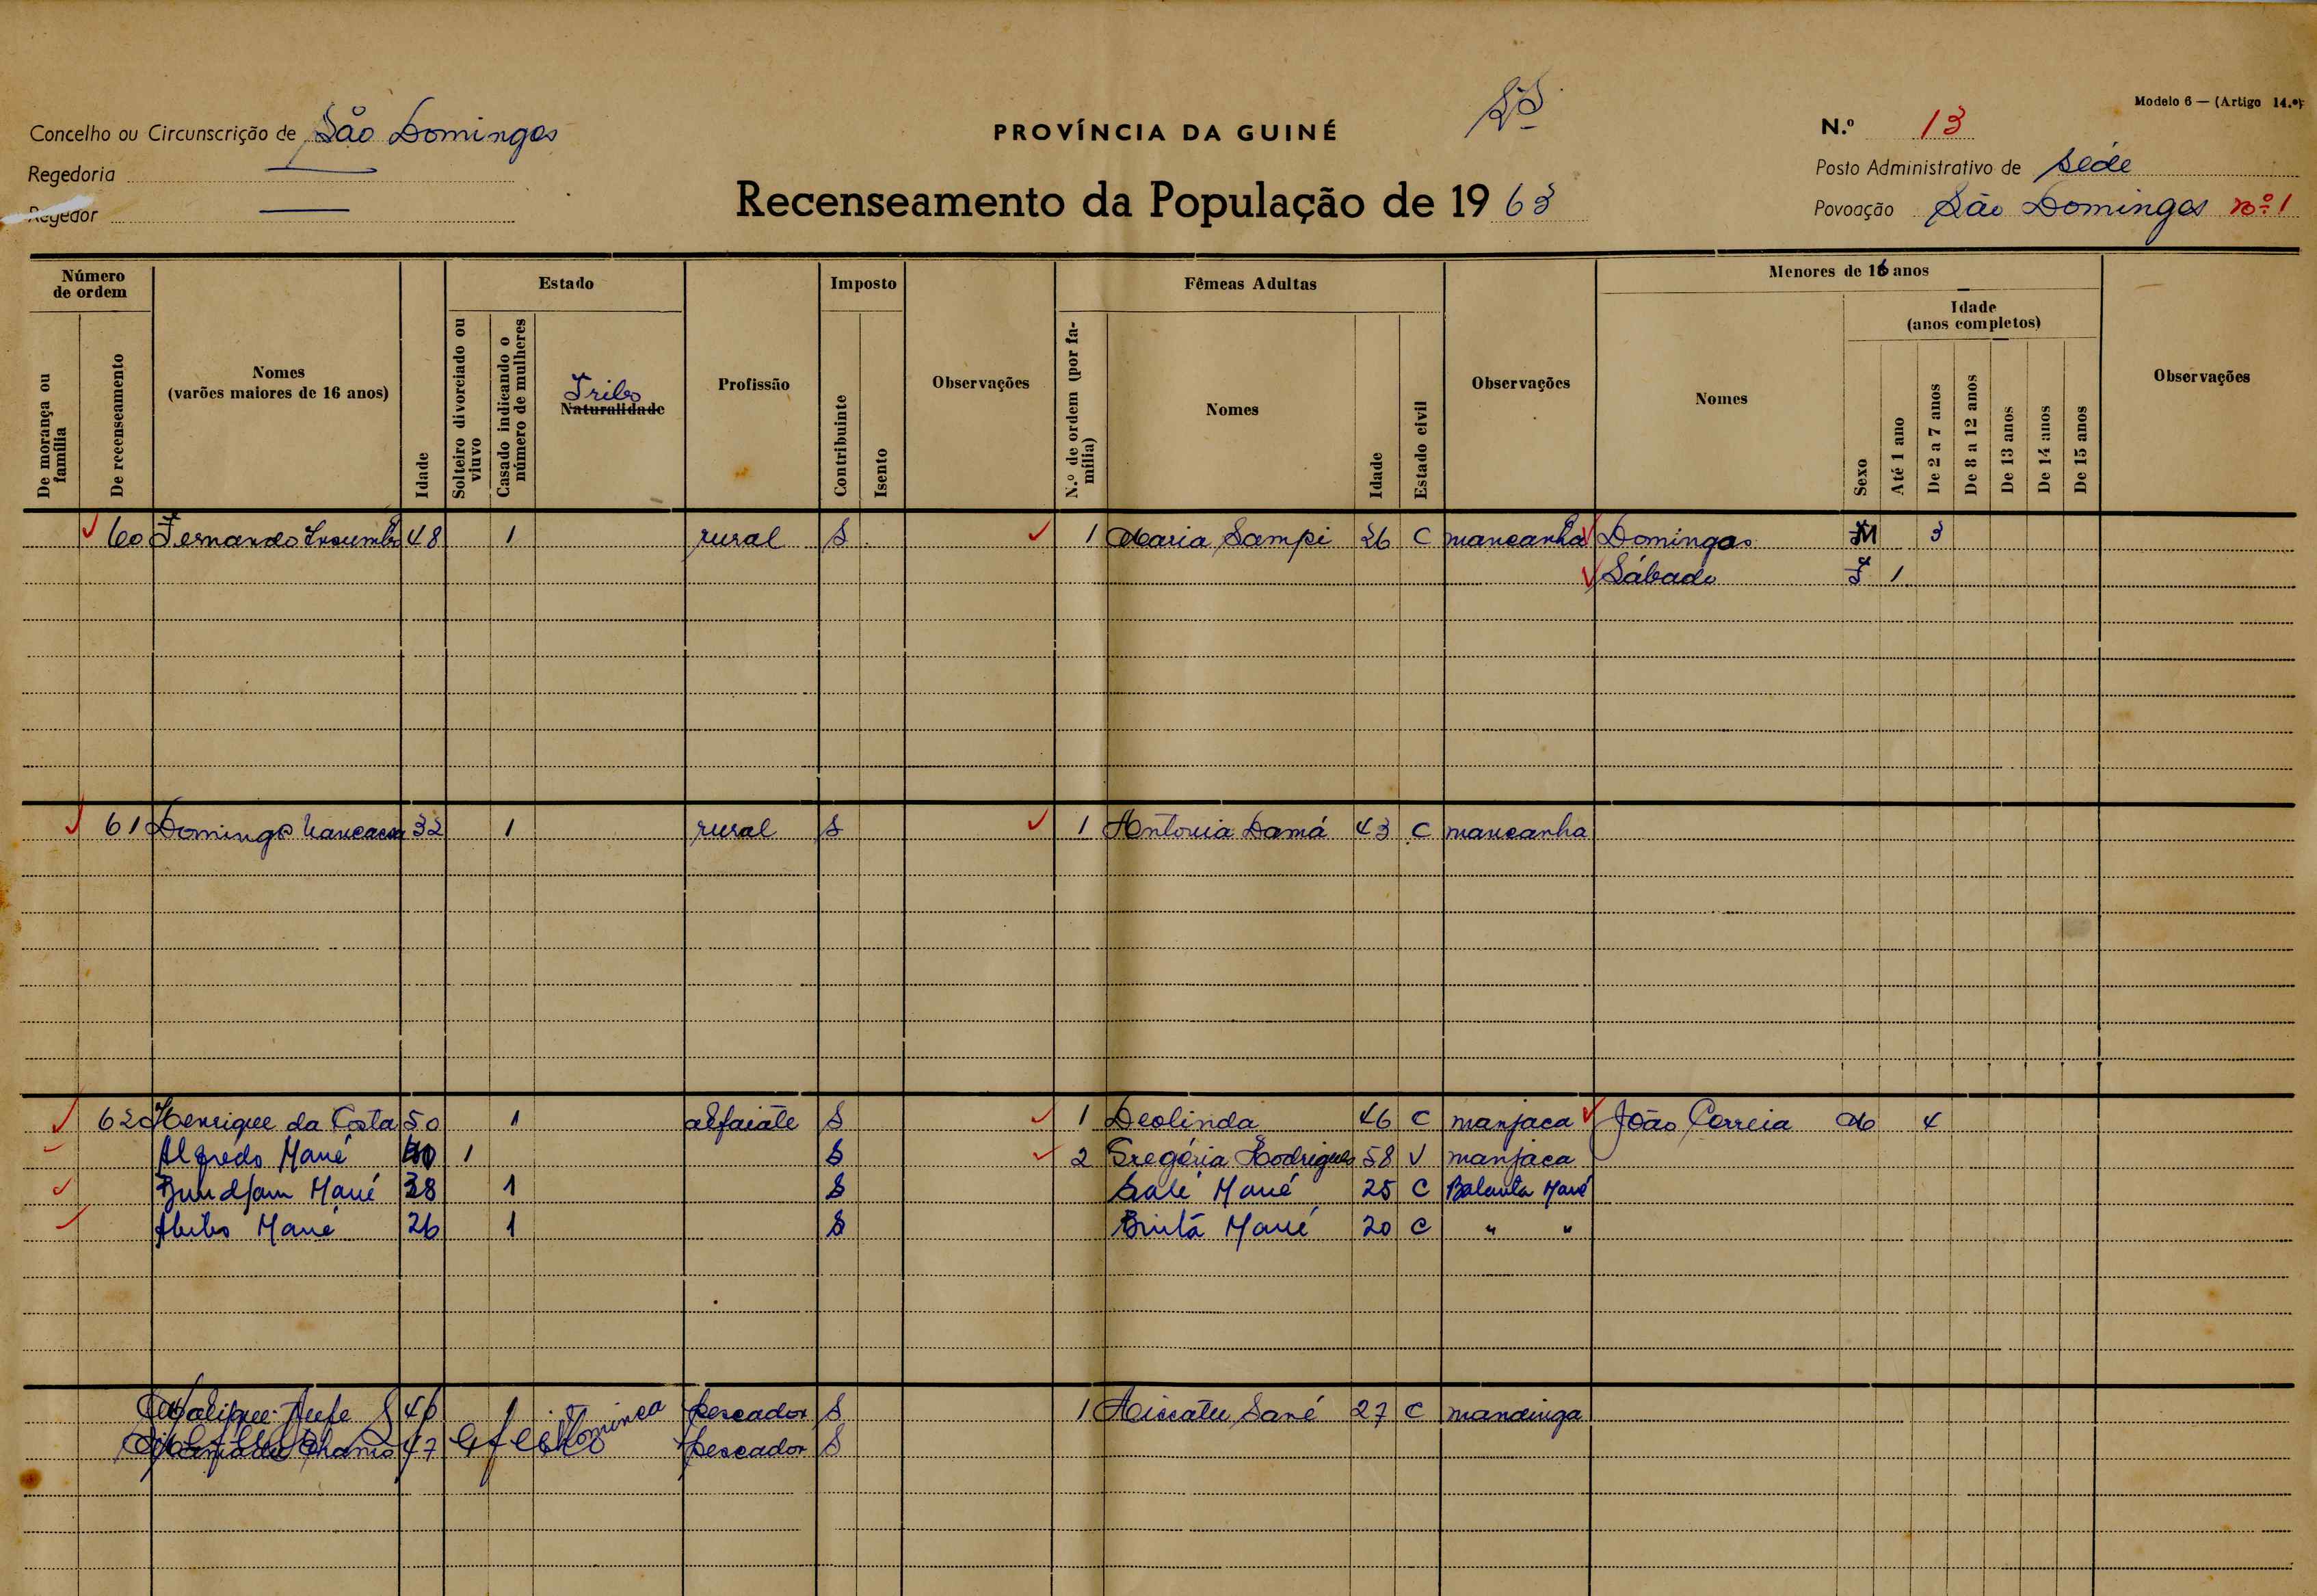 Modelo 6 — (Artigo 14.º)
Concelho ou Circunscrição de São Domingos
PROVÍNCIA DA GUINÉ
N.º 13
Regedoria —
Posto Administrativo de Séde
Regedor —
Recenseamento da População de 1963
Povoação São Domingos nº 1
Número de ordem
De morança ou família
De recenseamento
Nomes
(varões maiores de 16 anos)
Idade
Estado
Solteiro divorciado ou viuvo
Casado indicando o número de mulheres
Tribo
Naturalidade
Profissão
Imposto
Contribuinte
Isento
Observações
Fêmeas Adultas
N.º de ordem (por família)
Nomes
Idade
Estado civil
Observações
Menores de 16 anos
Nomes
Sexo
Idade
(anos completos)
Até 1 ano
De 2 a 7 anos
De 8 a 12 anos
De 13 anos
De 14 anos
De 15 anos
Observações
60 Fernando 48 1 rural S 1 Maria Sampi 26 C mancanha Domingas M 3
Sábado F 1
61 Domingos 32 1 rural S 1 Antonia Damá 43 C mancanha
62 Henrique da Costa 50 1 alfaiate S 1 Deolinda 46 C manjaca João Correia M 4
Alfredo Mané 40 1 S 2 Gregória Rodrigues 58 V manjaca
Bundjam Mané 38 1 S Salé Mané 25 C Balanta Mané
Abibo Mané 26 1 S Bintã Mané 20 C " "
46 1 pescador S 1 Aissatu Sané 27 C mandinga
47 pescador S